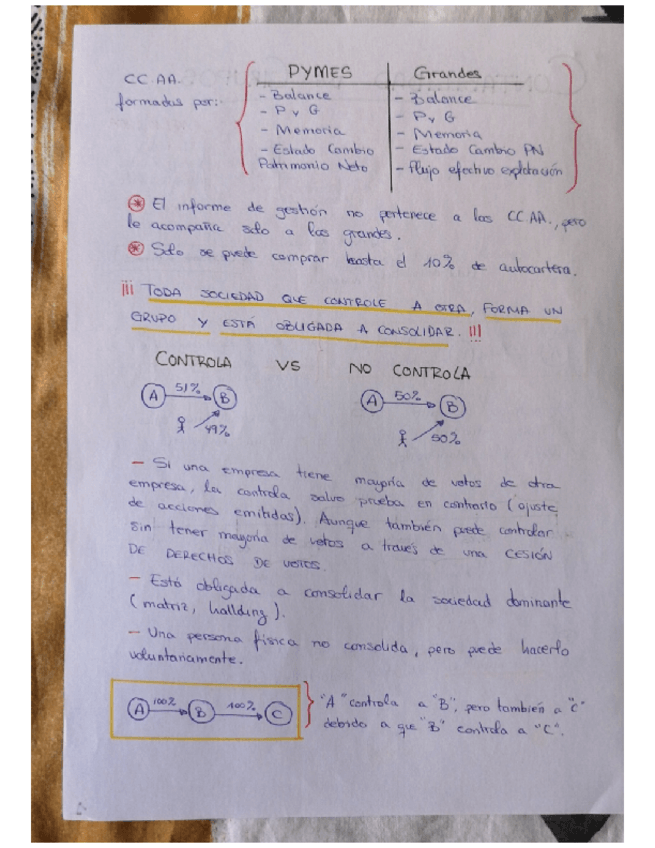 CC.AA. formadas por:
PYMES
- Balance
- P y G
- Memoria
- Estado Cambio
Patrimonio Neto
Grandes
- Balance
- P y G
- Memoria
- Estado Cambio PN
- Flujo efectivo explotación
* El informe de gestión no pertenece a las CC.AA., pero
le acompaña solo a las grandes.
* Solo se puede comprar hasta el 10% de autocartera.
¡¡¡ TODA SOCIEDAD QUE CONTROLE A OTRA, FORMA UN
GRUPO Y ESTÁ OBLIGADA A CONSOLIDAR. !!!
CONTROLA VS NO CONTROLA
A 51% B
49%
A 50% B
50%
- Si una empresa tiene mayoría de votos de otra
empresa, la controla salvo prueba en contrario (ajuste
de acciones emitidas). Aunque también puede controlar
sin tener mayoría de votos a través de una CESIÓN
DE DERECHOS DE VOTOS.
- Está obligada a consolidar la sociedad dominante
(matriz, hallding).
- Una persona física no consolida, pero puede hacerlo
voluntariamente.
A 100% B 100% C
"A" controla a "B", pero también a "C"
debido a que "B" controla a "C".